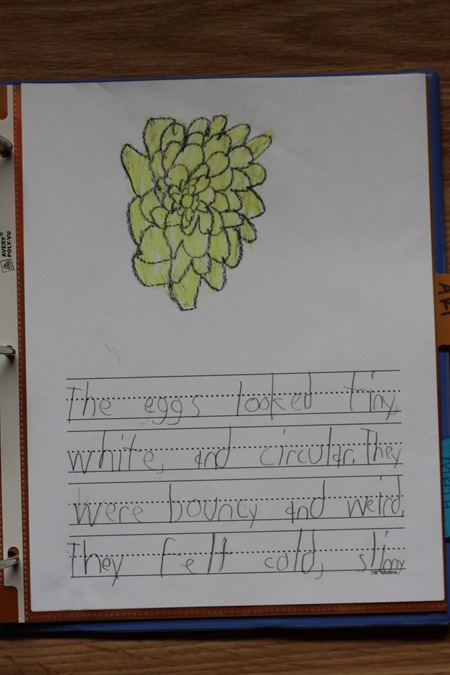 AVERY®
POLY-VU
The eggs looked tiny,
white, and circular. They
were bouncy and weird.
They felt cold, slimy